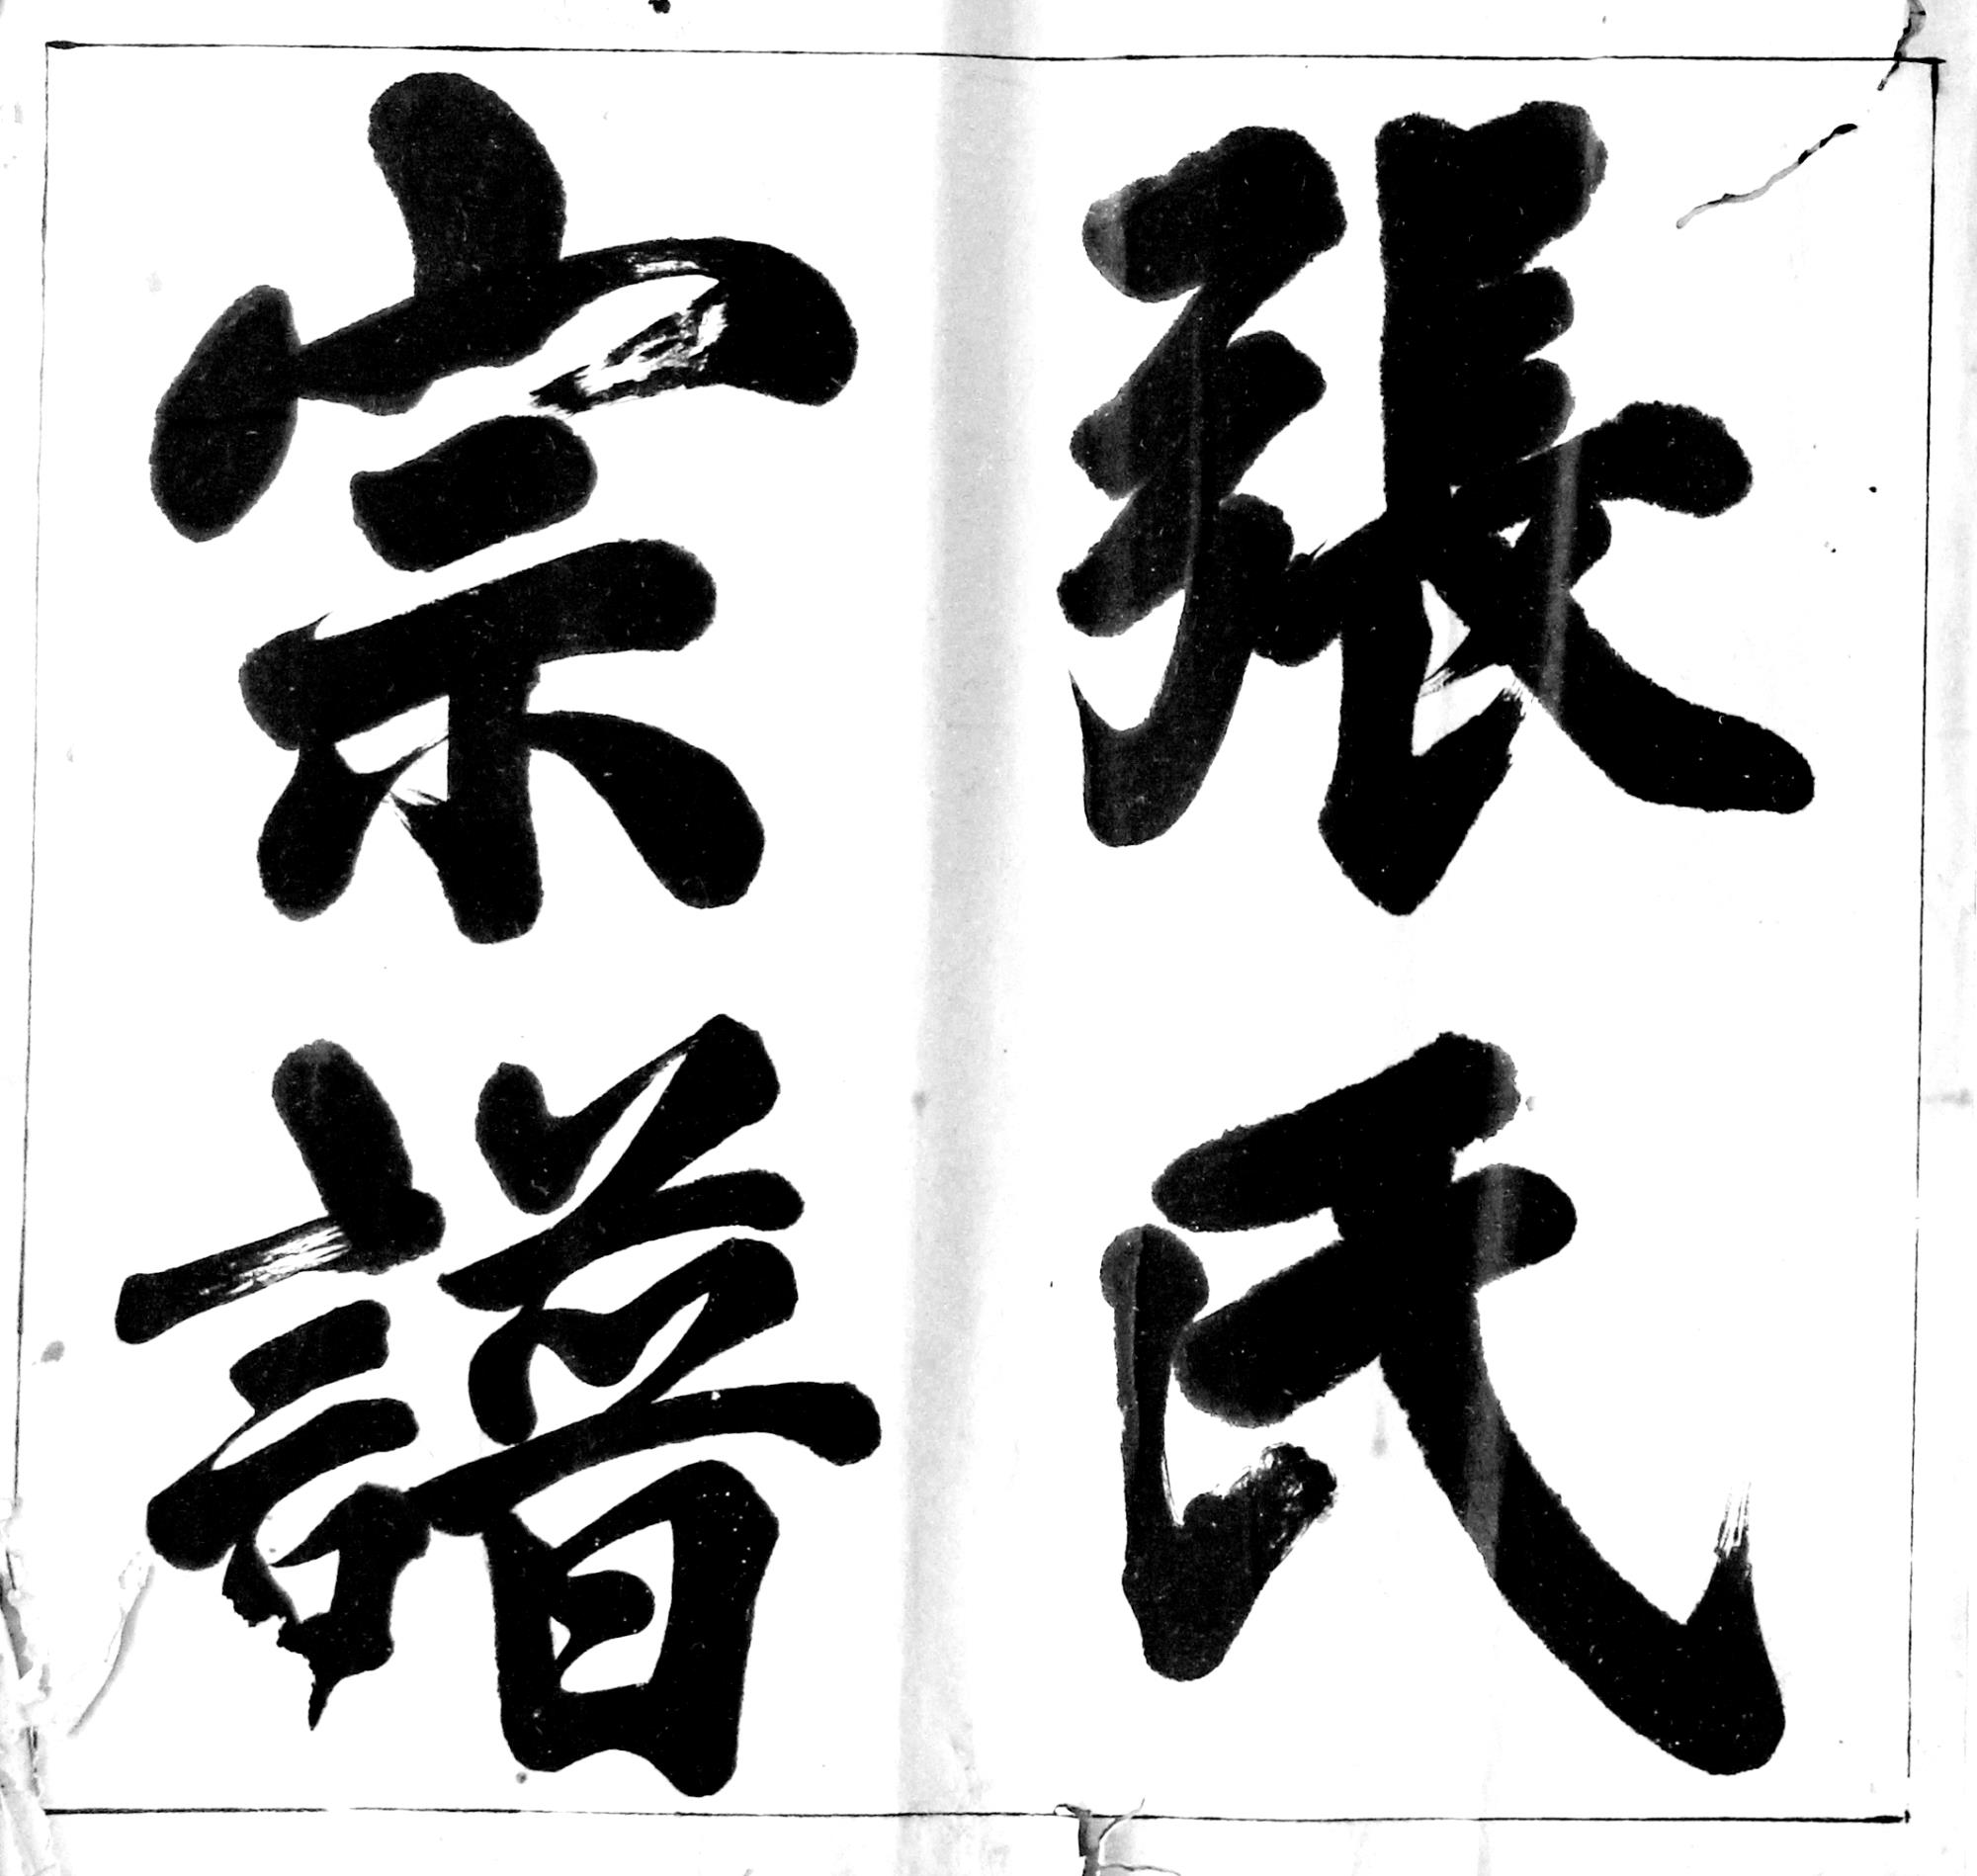 張氏
宗譜